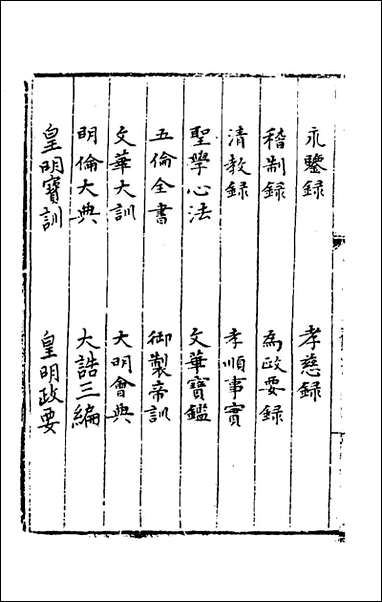 永鑒録 孝慈録
稽制録 為政要録
清教録 孝順事實
聖學心法 文華寶鑑
五倫全書 御製帝訓
文華大訓 大明會典
明倫大典 大誥三編
皇明寶訓 皇明政要